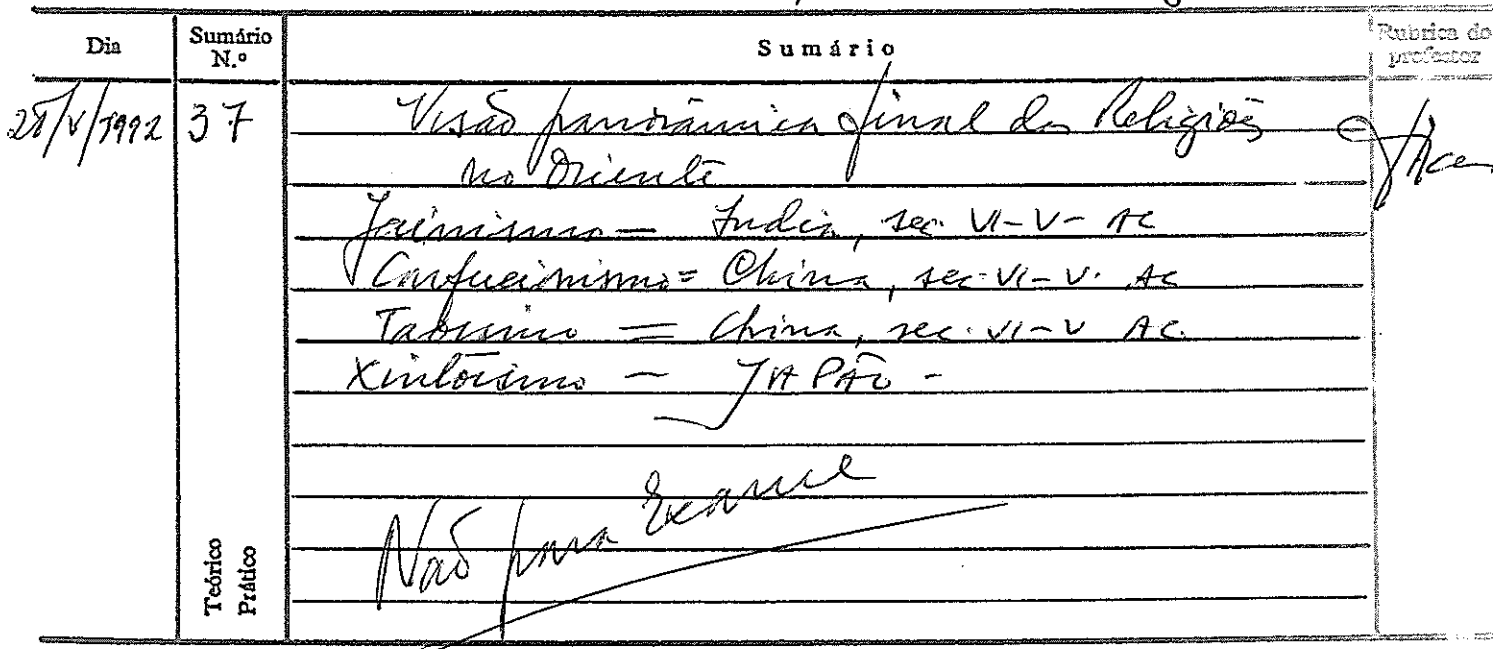 Dia
Sumário N.º
Sumário
Rubrica do professor
/V/1992
37
Visão panorâmica final das Religiões
no Oriente
Jainismo — India, sec. VI-V- AC
Confucionismo = China, sec. VI-V. AC
Taoismo = China, sec. VI-V AC.
Xintoísmo - JAPÃO -
Não para Exame
Teórico
Prático